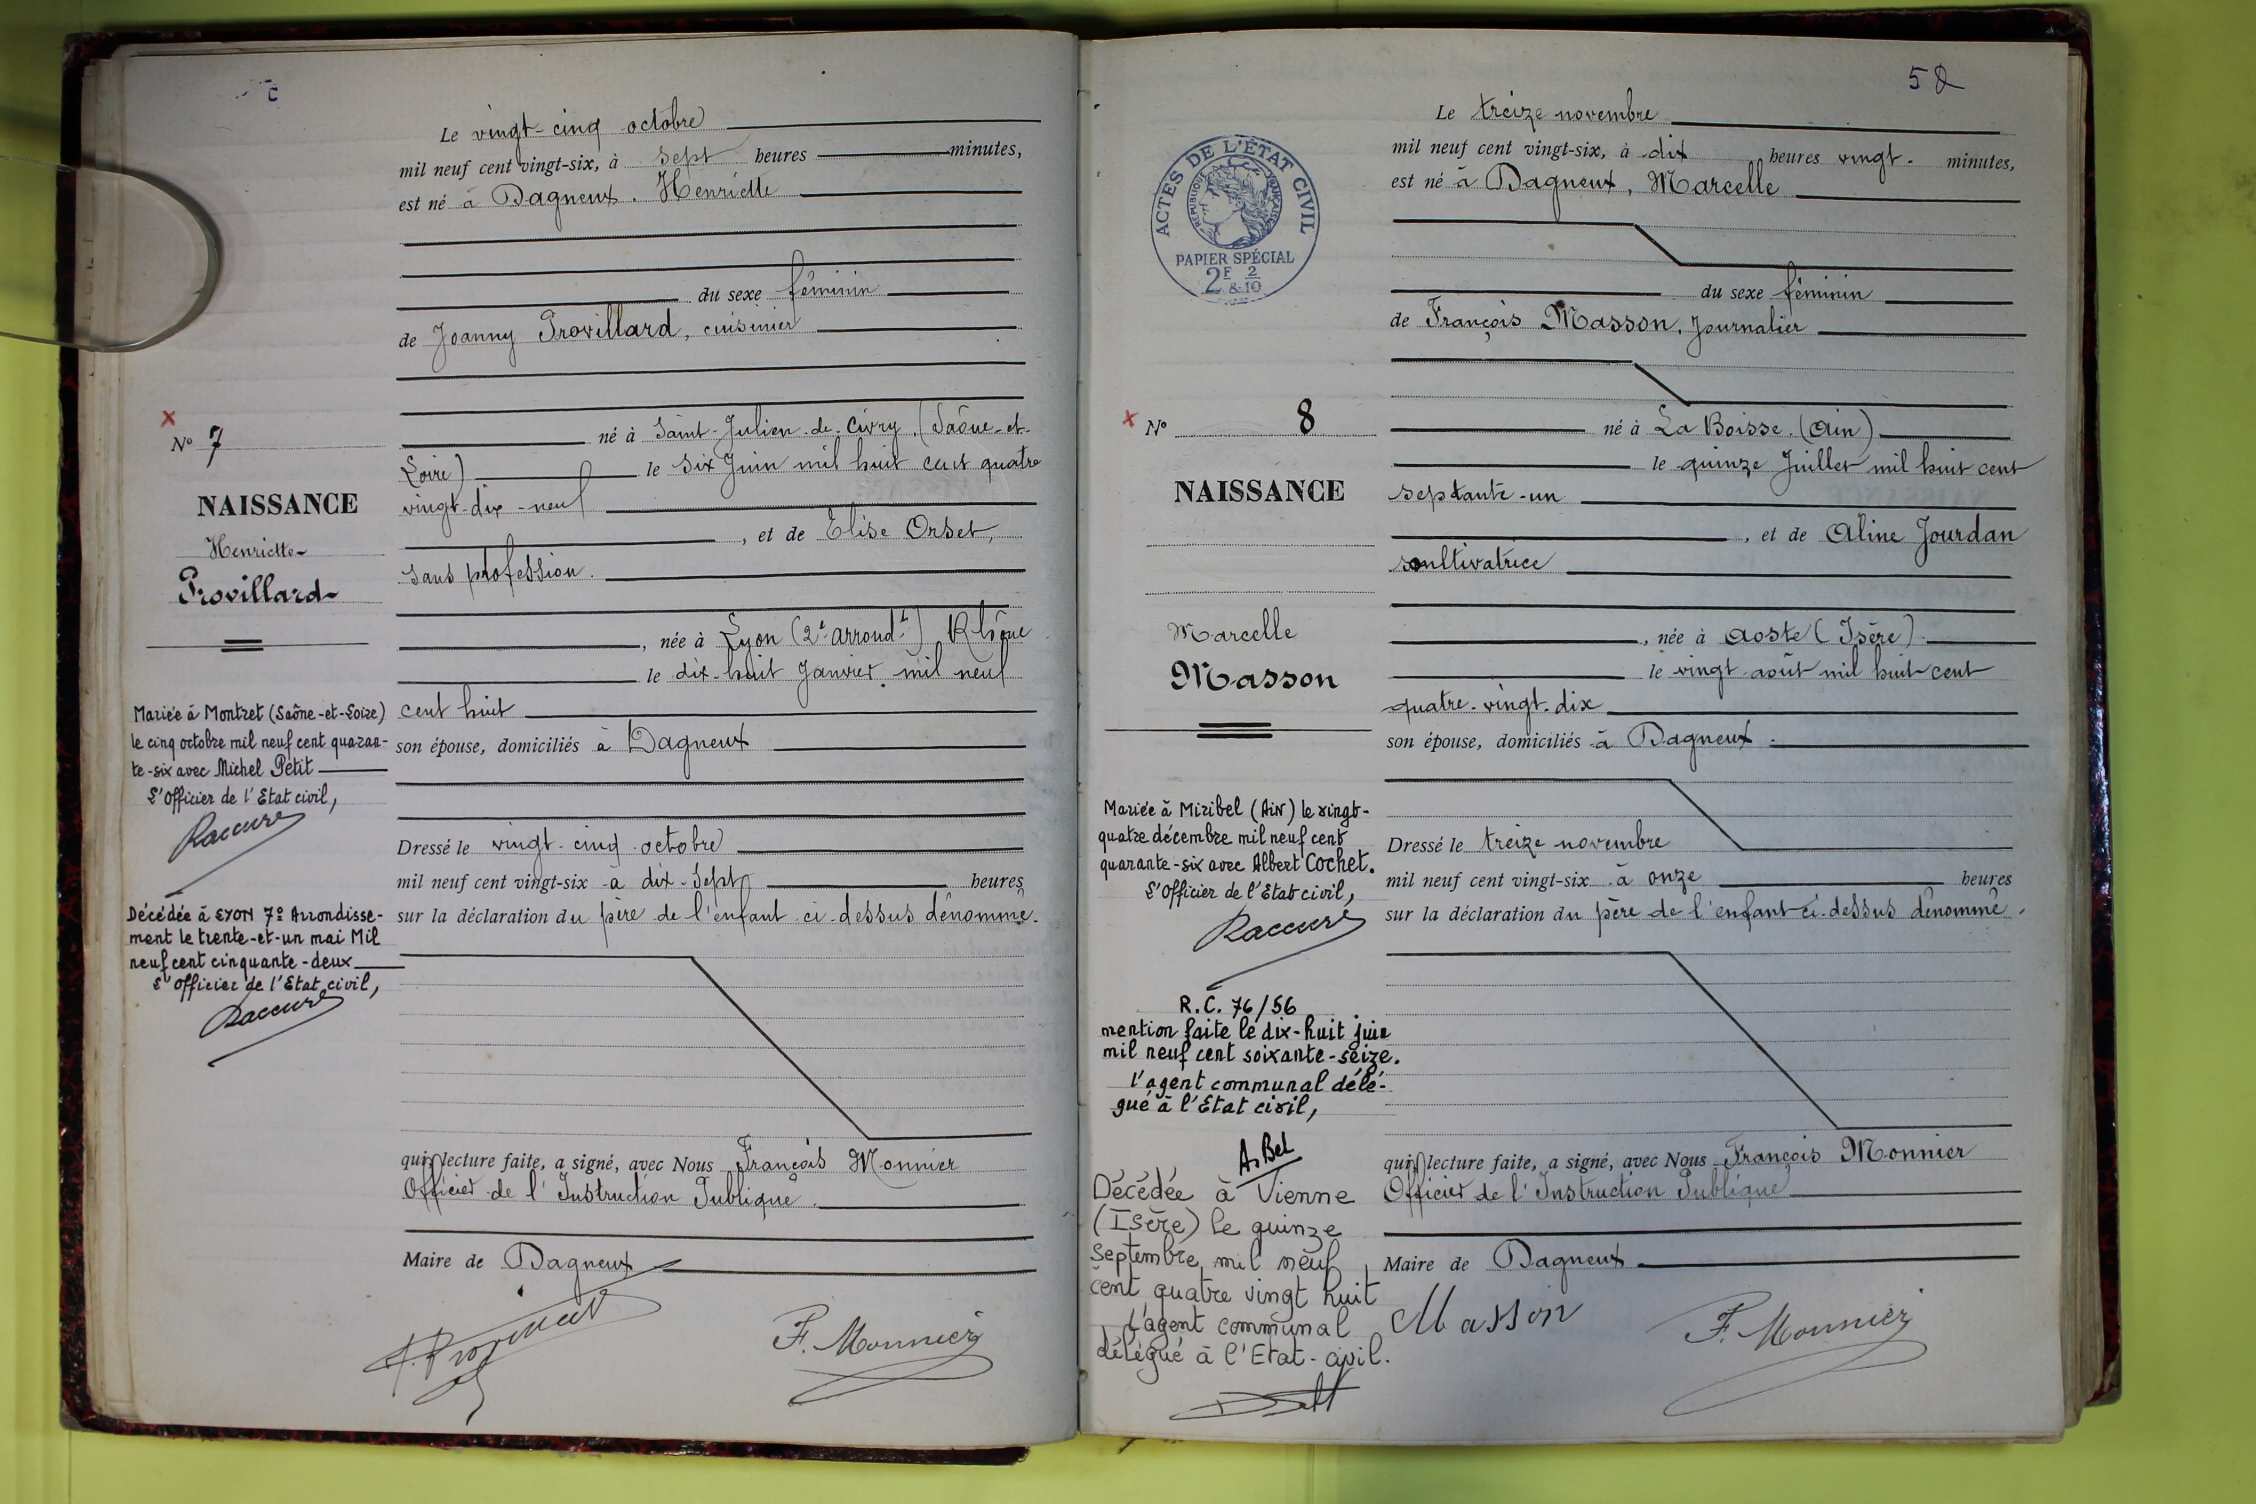 Le vingt-cinq octobre
mil neuf cent vingt-six, à sept heures minutes,
est né à Dagneux. Henriette
du sexe féminin
de Joanny Provillard, cuisinier
né à Saint-Julien-de-Civry (Saône-et-
Loire) le six Juin mil huit cent quatre
vingt-dix-neuf
, et de Elise Orset,
sans profession.
, née à Lyon (2e arrondt) Rhône
le dix-huit Janvier mil neuf
cent huit
son épouse, domiciliés à Dagneux
Dressé le vingt-cinq octobre
mil neuf cent vingt-six à dix-sept heures
sur la déclaration du père de l'enfant ci-dessus dénommé.
qui, lecture faite, a signé, avec Nous François Monnier
Officier de l'Instruction Publique
Maire de Dagneux
F. Monnier
No 7
NAISSANCE
Henriette
Provillard
Mariée à Montret (Saône-et-Loire)
le cinq octobre mil neuf cent quaran-
te-six avec Michel Petit
L'Officier de l'Etat civil,
Raccurt
Décédée à LYON 7e Arrondisse-
ment le trente-et-un mai Mil
neuf cent cinquante-deux
L'Officier de l'Etat civil,
Raccurt
52
Le treize novembre
mil neuf cent vingt-six, à dix heures vingt minutes,
est né à Dagneux, Marcelle
du sexe féminin
de François Masson, Journalier
né à La Boisse (Ain)
le quinze Juillet mil huit cent
septante-un
, et de Aline Jourdan
cultivatrice
, née à Aoste (Isère)
le vingt août mil huit cent
quatre-vingt-dix
son épouse, domiciliés à Dagneux
Dressé le treize novembre
mil neuf cent vingt-six à onze heures
sur la déclaration du père de l'enfant ci-dessus dénommé.
qui, lecture faite, a signé, avec Nous François Monnier
Officier de l'Instruction Publique
Maire de Dagneux
Masson F. Monnier
ACTES DE L'ÉTAT CIVIL
RÉPUBLIQUE FRANÇAISE
PAPIER SPÉCIAL
2F 2
&10
No 8
NAISSANCE
Marcelle
Masson
Mariée à Miribel (AIN) le vingt-
quatre décembre mil neuf cent
quarante-six avec Albert Cochet.
L'Officier de l'Etat civil,
Raccurt
R.C. 76/56
mention faite le dix-huit juin
mil neuf cent soixante-seize.
l'agent communal délé-
gué à l'Etat civil,
A. Bel
Décédée à Vienne
(Isère) le quinze
septembre mil neuf
cent quatre vingt huit
L'agent communal
délégué à l'Etat-civil.